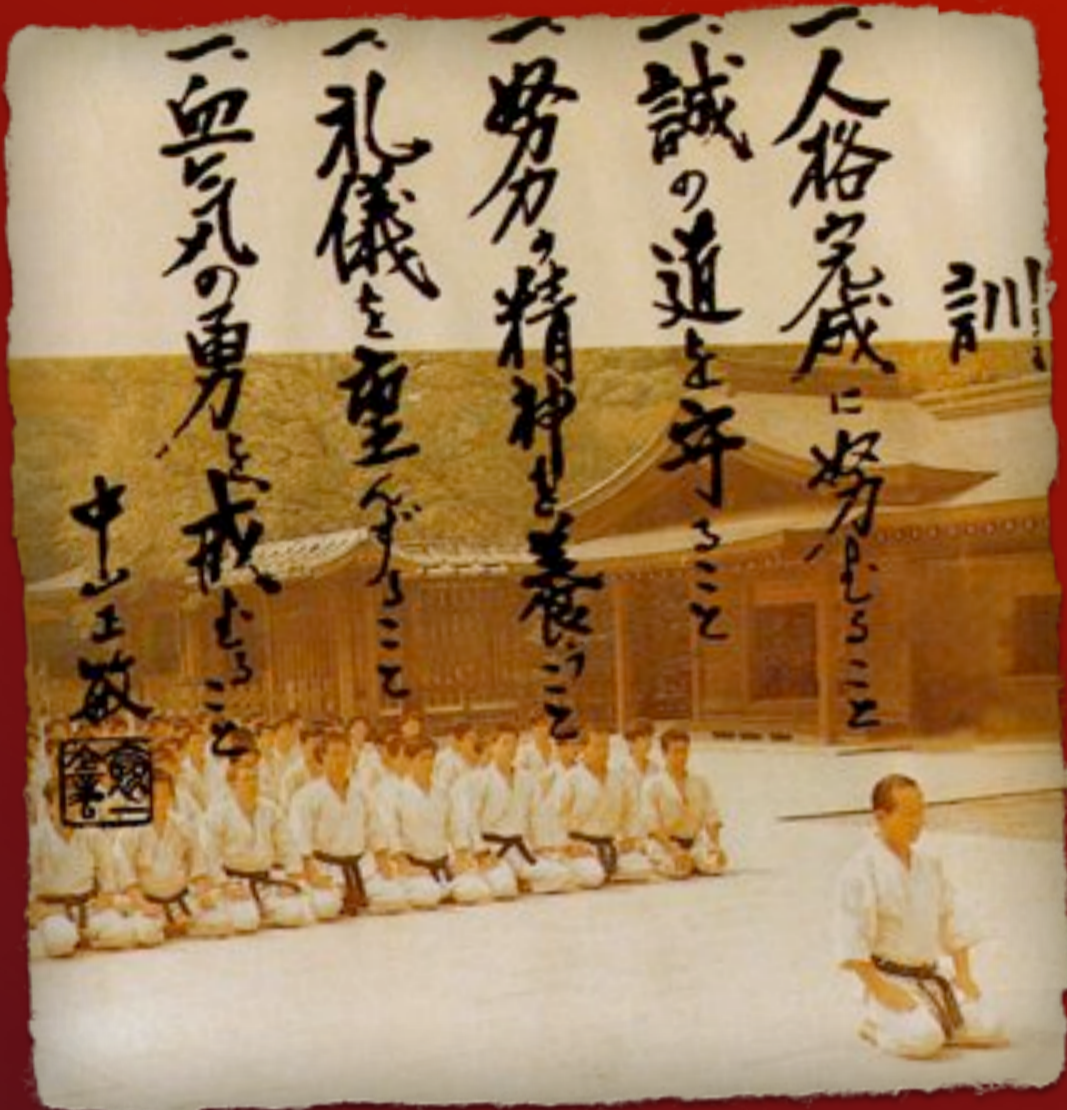 訓
一、人格完成に努むること
一、誠の道を守ること
一、努力の精神を養うこと
一、礼儀を重んずること
一、血気の勇を戒むること
中山正敏